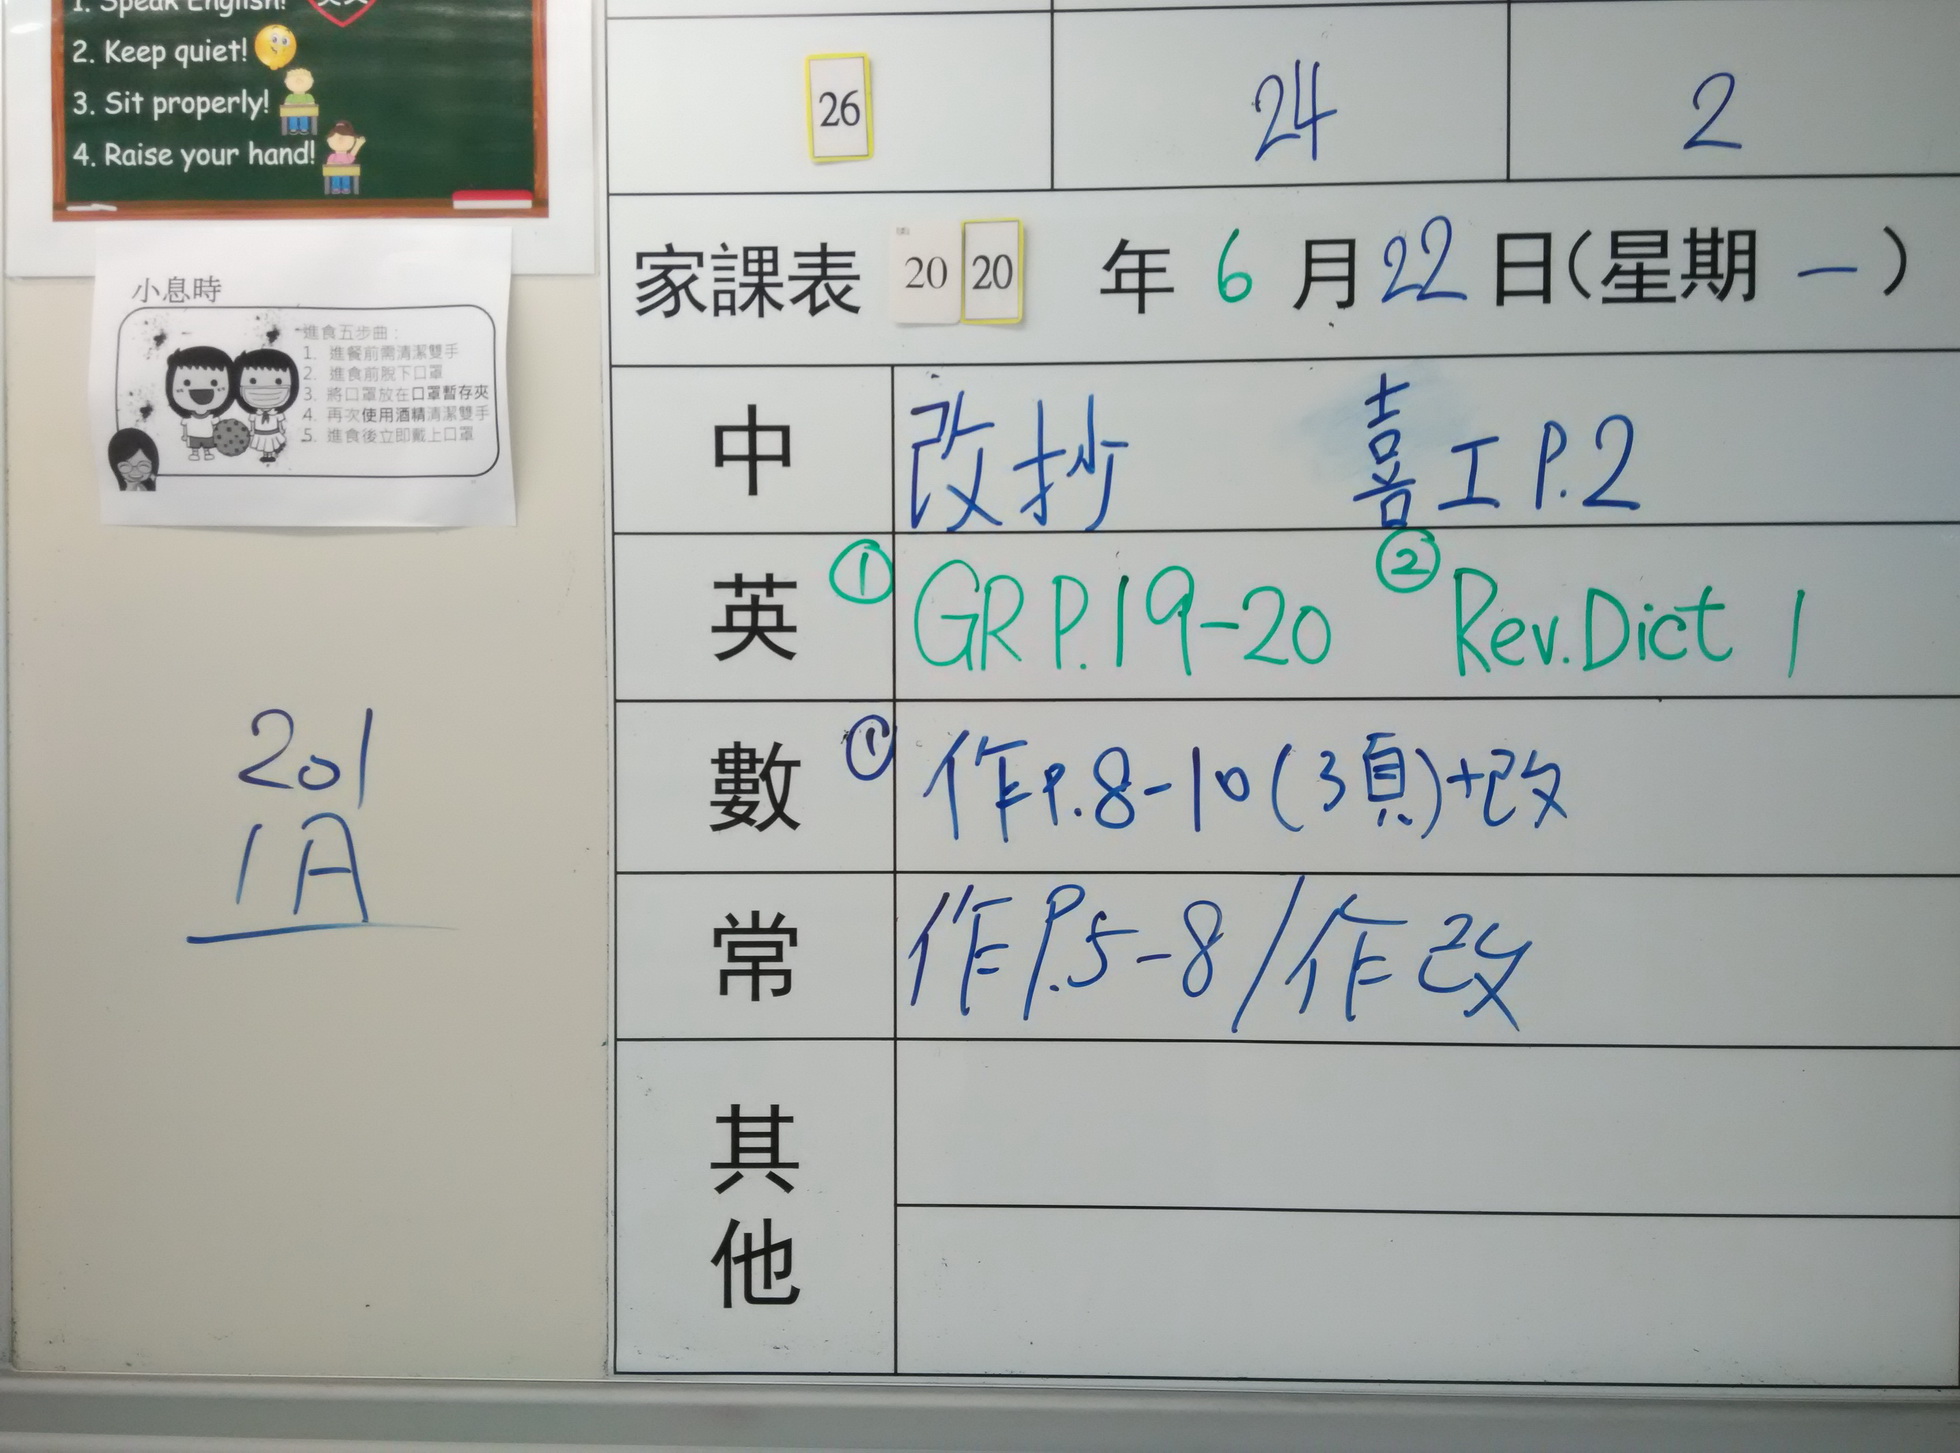 1. Speak English!
2. Keep quiet!
3. Sit properly!
4. Raise your hand!
小息時
進食五步曲：
1. 進餐前需清潔雙手
2. 進食前脫下口罩
3. 將口罩放在口罩暫存夾
4. 再次使用酒精清潔雙手
5. 進食後立即戴上口罩
201
1A
26 24 2
家課表 20 20 年 6 月 22 日(星期 一)
中 改抄 喜工 P.2
英 ① GR P.19-20 ② Rev.Dict 1
數 ① 作P.8-10(3頁)+改
常 作P.5-8/作改
其他